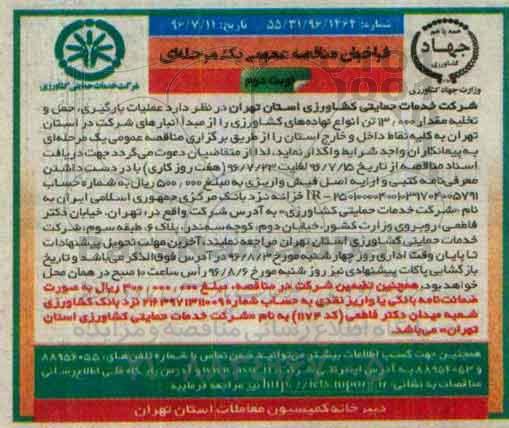 شماره: ۵۵/۳۱/۹۶/۱۲۶۴ تاریخ: ۹۶/۷/۱۱
همه با هم
جهاد
کشاورزی
وزارت جهاد کشاورزی
فراخوان مناقصه عمومی یک مرحله‌ای
نوبت دوم
شرکت خدمات حمایتی کشاورزی
شرکت خدمات حمایتی کشاورزی استان تهران در نظر دارد عملیات بارگیری، حمل و
تخلیه مقدار ۱۳/۰۰۰ تن انواع نهاده‌های کشاورزی را از مبدأ انبارهای شرکت در استان
تهران به کلیه نقاط داخل و خارج استان را از طریق برگزاری مناقصه عمومی یک مرحله‌ای
به پیمانکاران واجد شرایط واگذار نماید، لذا از متقاضیان دعوت می‌گردد جهت دریافت
اسناد مناقصه از تاریخ ۹۶/۷/۱۵ لغایت ۹۶/۷/۲۳ (هفت روز کاری) با در دست داشتن
معرفی‌نامه کتبی و ارایه اصل فیش واریزی به مبلغ ۵۰۰/۰۰۰ ریال به شماره حساب
IR - خزانه نزد بانک مرکزی جمهوری اسلامی ایران به
نام «شرکت خدمات حمایتی کشاورزی» به آدرس شرکت واقع در: تهران، خیابان دکتر
فاطمی، روبروی وزارت کشور، خیابان دوم، کوچه سه‌ندر، پلاک ۶، طبقه سوم، شرکت
خدمات حمایتی کشاورزی استان تهران مراجعه نمایند. آخرین مهلت تحویل پیشنهادات
تا پایان وقت اداری روز چهارشنبه مورخ ۹۶/۸/۳ در آدرس فوق‌الذکر می‌باشد و تاریخ
بازگشایی پاکات پیشنهادی نیز روز شنبه مورخ ۹۶/۸/۶ رأس ساعت ۱۰ صبح در همان محل
خواهد بود. همچنین تضمین شرکت در مناقصه، مبلغ ۳۰۰/۰۰۰/۰۰۰ ریال به صورت
ضمانت‌نامه بانکی یا واریز نقدی به حساب شماره نزد بانک کشاورزی
شعبه میدان دکتر فاطمی (کد ۱۱۷۴) به نام «شرکت خدمات حمایتی کشاورزی استان
تهران» می‌باشد.
همچنین جهت کسب اطلاعات بیشتر می‌توانید ضمن تماس با شماره تلفن‌های: ۸۸۹۵۶۰۵۵
و ۸۸۹۵۶۰۵۳ به آدرس اینترنتی و آدرس پایگاه ملی اطلاع‌رسانی
مناقصات به نشانی: نیز مراجعه فرمایید.
دبیرخانه کمیسیون معاملات استان تهران